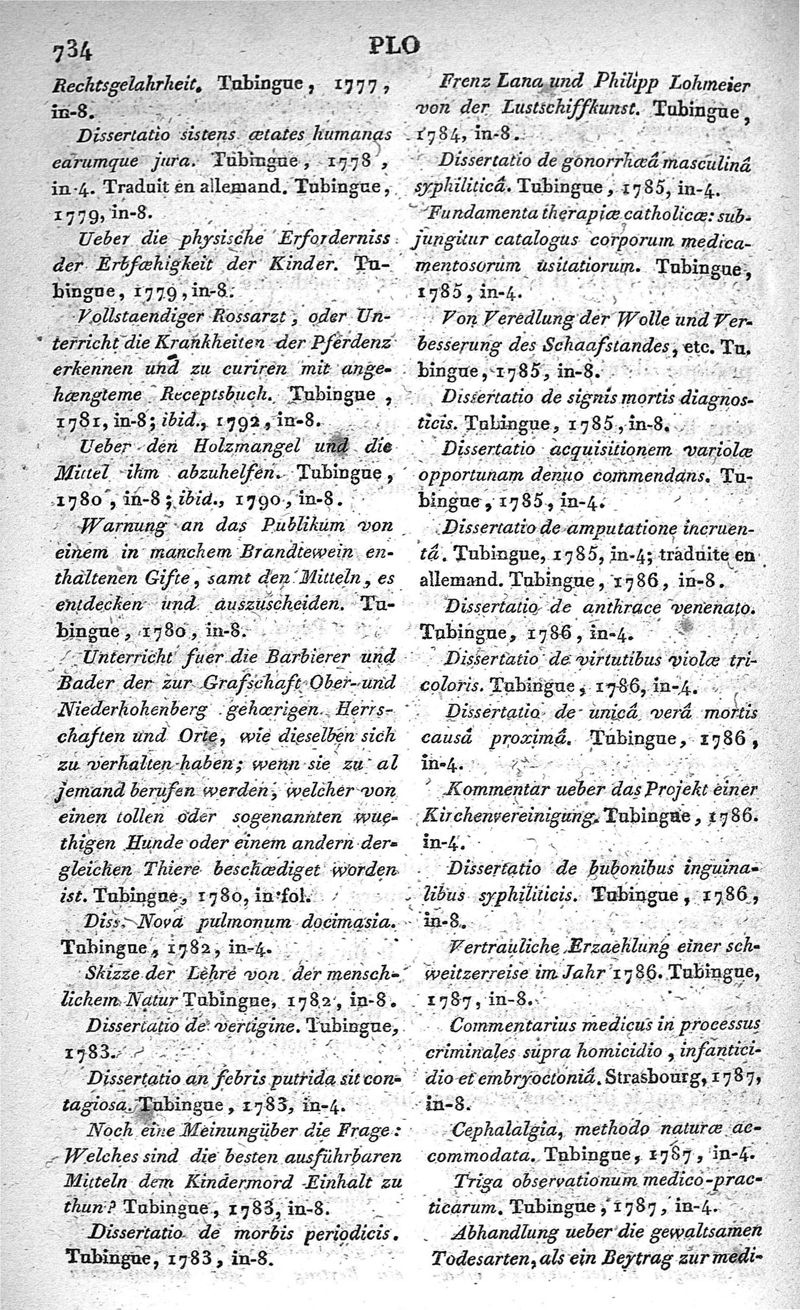 734
PLO
Rechtsgelahrheit. Tubingue, 1777,
in-8.
Dissertatio sistens ætates humanas
earumque jura. Tubingue, 1778,
in-4. Traduit en allemand. Tubingue,
1779, in-8.
Ueber die physische Erforderniss
der Erbfæhigkeit der Kinder. Tu-
bingue, 1779, in-8.
Vollstaendiger Rossarzt, oder Un-
terricht die Krankheiten der Pferdenz
erkennen und zu curiren mit ange-
hængteme Receptsbuch. Tubingue,
1781, in-8; ibid., 1792, in-8.
Ueber den Holzmangel und die
Mittel ihm abzuhelfen. Tubingue,
1780, in-8; ibid., 1790, in-8.
Warnung an das Publikum von
einem in manchem Brandtewein en-
thaltenen Gifte, samt den Mitteln, es
entdecken und auszuscheiden. Tu-
bingue, 1780, in-8.
Unterricht fuer die Barbierer und
Bader der zur Grafschaft Ober-und
Niederhohenberg gehœrigen Herrs-
chaften und Orte, wie dieselben sich
zu verhalten haben; wenn sie zu al
jemand berufen werden, welcher von
einen tollen oder sogenannten wue-
thigen Hunde oder einem andern der-
gleichen Thiere beschœdiget worden
ist. Tubingue, 1780, in-fol.
Diss. Nova pulmonum docimasia.
Tubingue, 1782, in-4.
Skizze der Lehre von der mensch-
lichem Natur Tubingue, 1782, in-8.
Dissertatio de vertigine. Tubingue,
1783.
Dissertatio an febris putrida sit con-
tagiosa. Tubingue, 1783, in-4.
Noch eine Meinungüber die Frage:
Welches sind die besten ausführbaren
Mitteln dem Kindermord Einhalt zu
thun? Tubingue, 1783, in-8.
Dissertatio de morbis periodicis.
Tubingue, 1783, in-8.
Frenz Lana und Philipp Lohmeier
von der Lustschiffkunst. Tubingue,
1784, in-8.
Dissertatio de gonorrhœâ masculinâ
syphiliticâ. Tubingue, 1785, in-4.
Fundamenta therapiæ catholicæ: sub-
jungitur catalogus corporum medica-
mentosorum usitatiorum. Tubingue,
1785, in-4.
Von Veredlung der Wolle und Ver-
besserung des Schaafstandes, etc. Tu.
bingue, 1785, in-8.
Dissertatio de signis mortis diagnos-
ticis. Tubingue, 1785, in-8.
Dissertatio acquisitionem variolæ
opportunam denuo commendans. Tu-
bingue, 1785, in-4.
Dissertatio de amputatione incruen-
tâ. Tubingue, 1785, in-4; traduite en
allemand. Tubingue, 1786, in-8.
Dissertatio de anthrace venenato.
Tubingue, 1786, in-4.
Dissertatio de virtutibus violæ tri-
coloris. Tubingue, 1786, in-4.
Dissertatio de unicâ verâ mortis
causâ proximâ. Tubingue, 1786,
in-4.
Kommentar ueber das Projekt einer
Kirchenvereinigung. Tubingue, 1786.
in-4.
Dissertatio de bubonibus inguina-
libus syphiliticis. Tubingue, 1786,
in-8.
Vertrauliche Erzaehlung einer sch-
weitzerreise im Jahr 1786. Tubingue,
1787, in-8.
Commentarius medicus in processus
criminales supra homicidio, infantici-
dio et embryoctoniâ. Strasbourg, 1787,
in-8.
Cephalalgia, methodo naturæ ac-
commodata. Tubingue, 1787, in-4.
Triga observationum medico-prac-
ticarum. Tubingue, 1787, in-4.
Abhandlung ueber die gewaltsamen
Todesarten, als ein Beytrag zur medi-